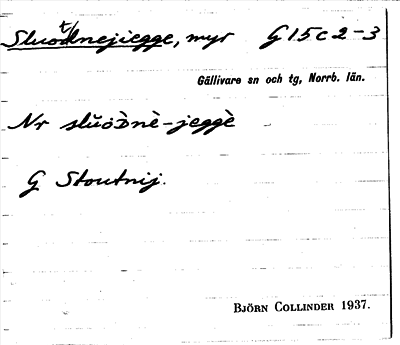 Sluotnejiegge, myr G 15 c 2-3
Gällivare sn och tg, Norrb. län.
Nr slŭöDnè-jeggè
G Stoutnij.
BJÖRN COLLINDER 1937.